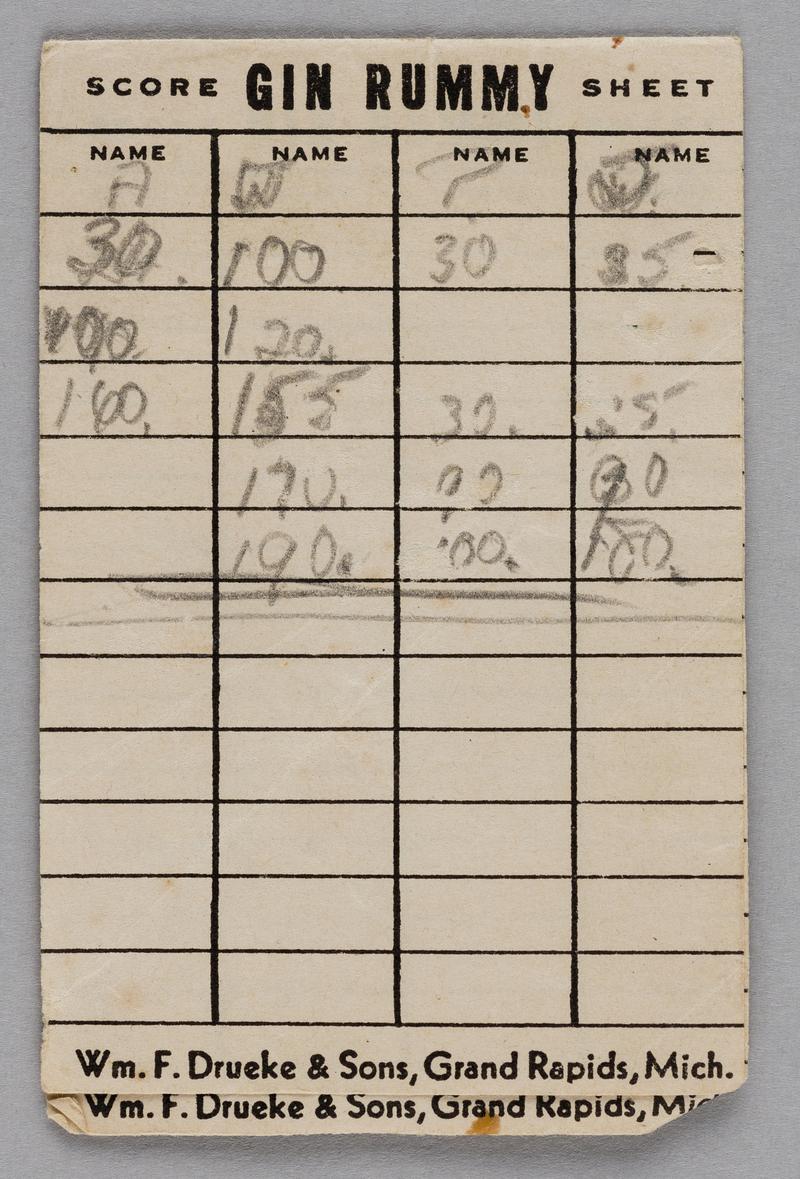 SCORE GIN RUMMY SHEET
NAME NAME NAME NAME
A W T
30. 100 30 85.
100. 120.
160. 155 30.
170. 90 90
190. 100. 100.
Wm. F. Drueke & Sons, Grand Rapids, Mich.
Wm. F. Drueke & Sons, Grand Rapids,